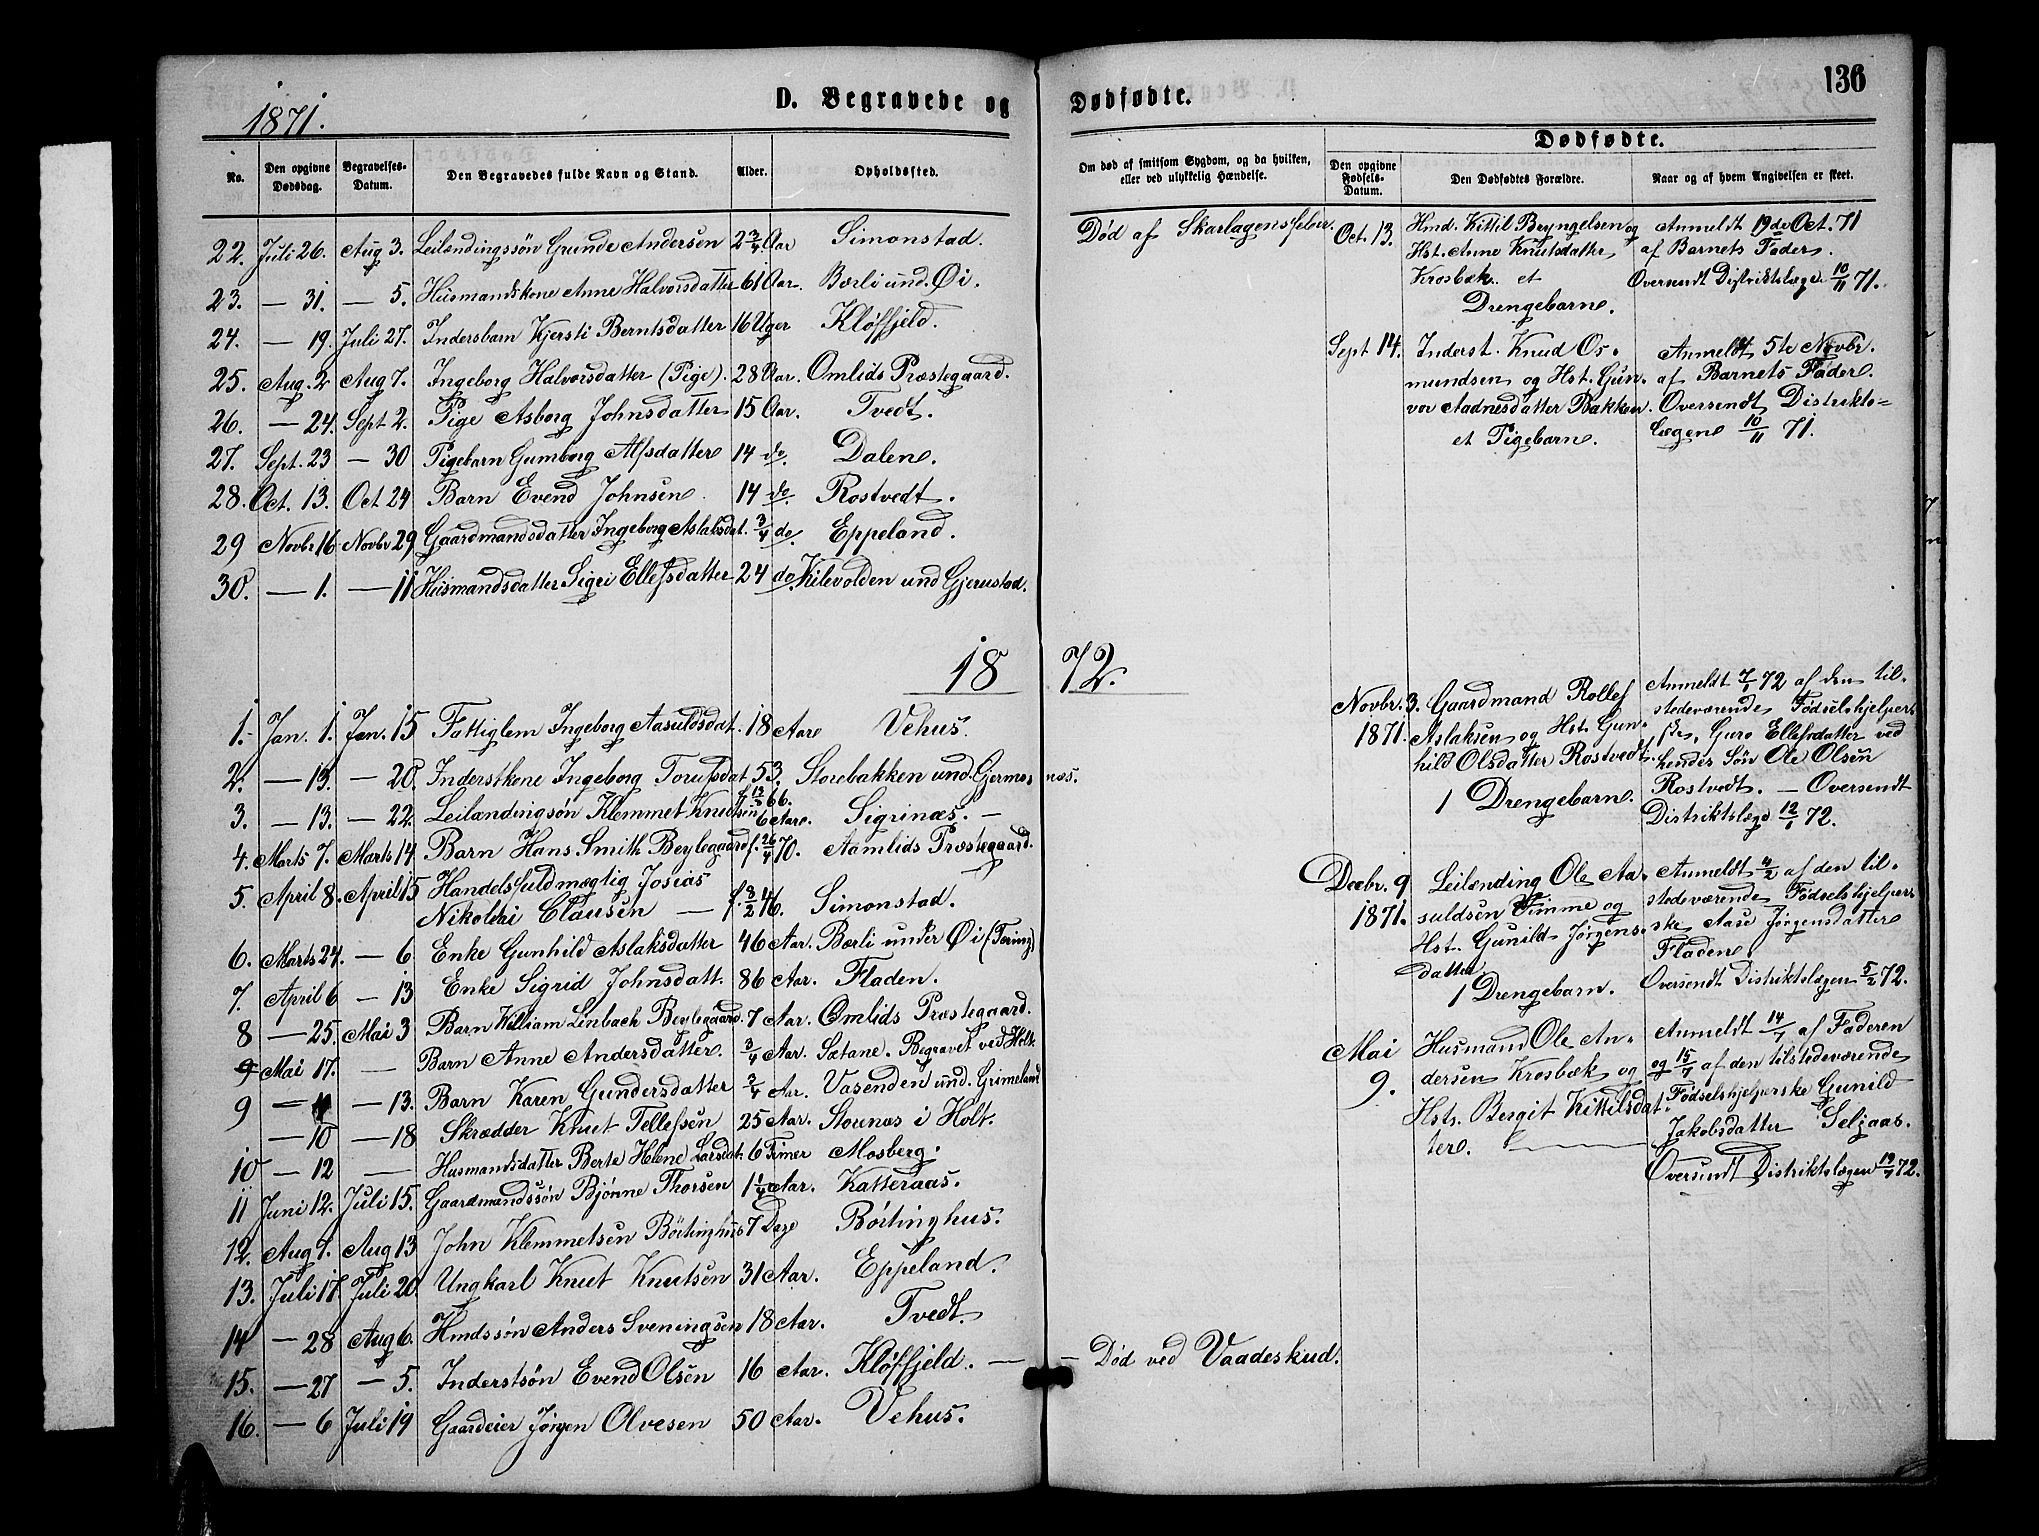 1871.
D. Begravede og Dødfødte.
136
Dødfødte.
No.
Den opgivne Dødsdag.
Begravelses-Datum.
Den Begravedes fulde Navn og Stand.
Alder.
Opholdssted.
Om død af smitsom Sygdom, og da hvilken, eller ved ulykkelig Hændelse.
Den opgivne Fødsels-Datum.
Den Dødfødtes Forældre.
Naar og af hvem Angivelsen er skeet.
22. Juli 26. Aug 3. Leilendingssøn Grunde Andersen 2 3/4 Aar Simonstad. Død af Skarlagensfeber
23. — 31. — 5. Husmandskone Anne Halvorsdatter 61 Aar. Bærli und. Øi.
24. — 19. Juli 27. Indersbarn Kjersti Berntsdatter 16 Uger Kløffjeld.
25. Aug. 2 Aug 7. Ingeborg Halvorsdatter (Pige). 28 Aar. Omlids Præstegaard.
26. — 24. Sept 2. Pige Asborg Johnsdatter 15 Aar. Tvedt.
27. Sept. 23 — 30 Pigebarn Gumborg Alfsdatter 14 do. Dalen.
28. Oct. 13. Oct 24 Barn Evend Johnsen. 14 do. Rostvedt.
29 Novbr 16 Novbr 29 Gaardmandsdatter Ingeborg Aslaksdat. 3/4 do. Eppeland.
30. — 1. — 11 Husmandsdatter Sigri Ellefsdatter 24 do. Kilevolden und Gjerustad.
1872.
1. Jan. 1. Jan. 15 Fattiglem Ingeborg Aasuldsdat. 18 Aar Vehus.
2. — 13. — 20. Inderstkone Ingeborg Torufsdat. 53. Storebakken und. Germesnæs.
3. — 13. — 22. Leilændingsøn Klemmet Knudsen 66. 6 Aar. Sigrinæs. —
4. Marts 7. Marts 14 Barn Hans Smith Beylegaard f. 26/4 70. Aamlids Præstegaard.
5. April 8. April 15 Handelsfuldmægtig Josias
Nikolai Clausen — f. 8/2 46. Simonstad.
6. Marts 24. — 6 Enke Gunhild Aslaksdatter 46 Aar. Bærli under Øi
7. April 6 — 13 Enke Sigrid Johnsdatt. 86 Aar. Fladen.
8 — 25. Mai 3 Barn William Linbach Beylegaard. 7 Aar. Omlids Præstegaard.
9 Mai 17. — Barn Anne Andersdatter. 3/4 Aar. Sætane. Begravet ved Holt.
9 — — 13. Barn Karen Gundersdatter 3/4 Aar. Vasenden und. Grimeland
— 10 — 18 Skrædder Knut Tellefsen 25 Aar. Storenæs i Holt.
10 — 12 — Husmandsdatter Berte Helene Larsdat. 6 Timer Mosberg.
11 Juni 12. Juli 15. Gaardmandssøn Bjønne Thorsen 1 1/4 Aar. Katteraas.
12. Aug 1. Aug 13 John Klemmetsen Börtinghus 7 Dage Börtinghus.
13. Juli 17 Juli 20 Ungkarl Knut Knutsen 31 Aar. Eppeland.
14 — 28 Aug 6. Hmdssøn Anders Sveningsen 18 Aar. Tvedt.
15. — 27 — 5. Inderstsön Evend Olsen 16 Aar. Kløffjeld. — — Død ved Vaadeskud.
16. — 6 Juli 19 Gaardeier Jørgen Olvesen 50 Aar. Vehus.
Oct. 13. Hmd. Kittil Bryngelsen og
Hst. Anne Knutsdatter
Krosbæk. et
Drengebarn.
Anmeldt 19de Oct. 71
af Barnets Fader.
Oversendt Distriktslæge 10/11 71.
Sept 14. Inderst. Knud Os-
mundsen og Hst. Gun-
vor Aadnesdatter Bakken.
et Pigebarn.
Anmeldt 5te Novbr.
af Barnets Fader.
Oversendt Distrikts-
lægen 10/11 71.
Novbr. 3.
1871.
Gaardmand Rollef
Aslaksen og Hst. Gun-
hild Olsdatter Rostvedt.
1 Drengebarn.
Anmeldt 7/1 72 af den til-
stedeværende Fødselshjelper-
ske, Guro Ellefsdatter ved
hendes Søn Ole Olsen
Rostvedt. — Oversendt
Distriktslæge 12/1 72.
Decbr. 9
1871.
Leilænding Ole Aa-
suldsen Vimme og
Hst. Gunild Jørgens-
datter
1 Drengebarn.
Anmeldt 4/2 af den til-
stedeværende Fødselshjelper-
ske Aase Jørgensdatter
Fladen.
Oversendt Distriktslægen 5/2 72.
Mai
9.
Husmand Ole An-
dersen Krosbæk og
Hst. Bergit Kittilsdat-
ter.
Anmeldt 14/7 af Faderen
og 15/7 af den tilstedeværende
Fødselshjelperske Gunild
Jakobsdatter Seljaas.
Oversendt Distriktslægen 19/7 72.